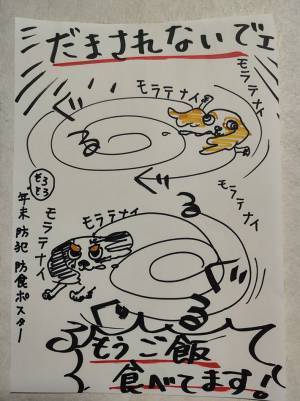 だまされないでェ
モラテナイ
モラテナイ
モラテナイ
ぐ
る
ぐ
る
そろそろ
年末 防犯 防食ポスター
モラテナイ
モラテナイ
モラテナイ
ぐ
る
ぐ
る
もうご飯
食べてます!